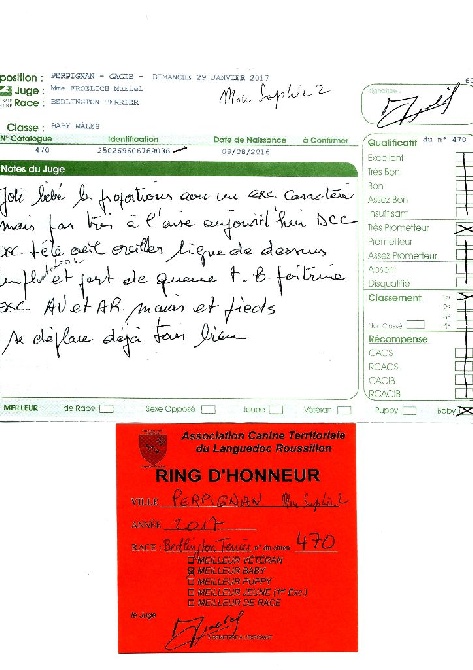 position : PERPIGNAN - CACIB - DIMANCHE 29 JANVIER 2017
Juge : Mme FROELICH Muriel
Race : BEDLINGTON TERRIER
Classe : BABY MALES
N° Catalogue Identification Date de Naissance à Confirmer
470 09/08/2016
Notes du Juge
Joli bébé bs proportions exc caractère
mais pas très à l'aise aujourd'hui
exc tête oeil oreilles ligne de dessus
et port de queue T. B poitrine
exc AV et AR mains et pieds
se déplace déjà bien
MEILLEUR de Race Sexe Opposé Jeune Vétéran Puppy Baby
Qualificatif du n° 470
Excellent
Très Bon
Bon
Assez Bon
Insuffisant
Très Prometteur
Prometteur
Assez Prometteur
Absent
Disqualifié
Classement
Non Classé
Récompense
CACS
RCACS
CACIB
RCACIB
Association Canine Territoriale
du Languedoc Roussillon
RING D'HONNEUR
VILLE PERPIGNAN
ANNEE 2017
RACE Bedlington Terrier 470
MEILLEUR VETERAN
MEILLEUR BABY
MEILLEUR PUPPY
MEILLEUR JEUNE
MEILLEUR DE RACE
le Juge